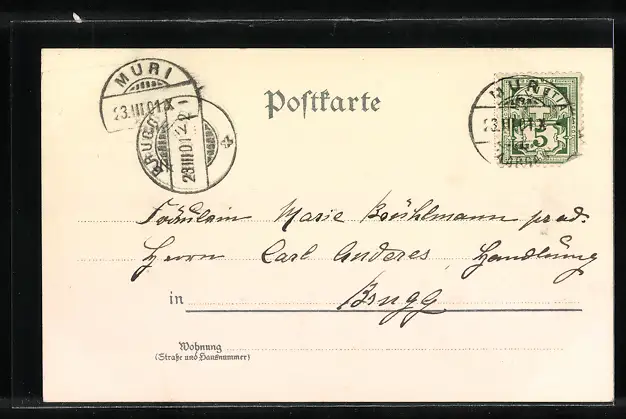 MURI
23.III.01.X
BRUGG
23.III.01
Postkarte
MURI
23.III.01.X
5
Fräulein Marie Brühlmann prad.
Herrn Carl Anderes Handlung
in Brugg
Wohnung
(Straße und Hausnummer)